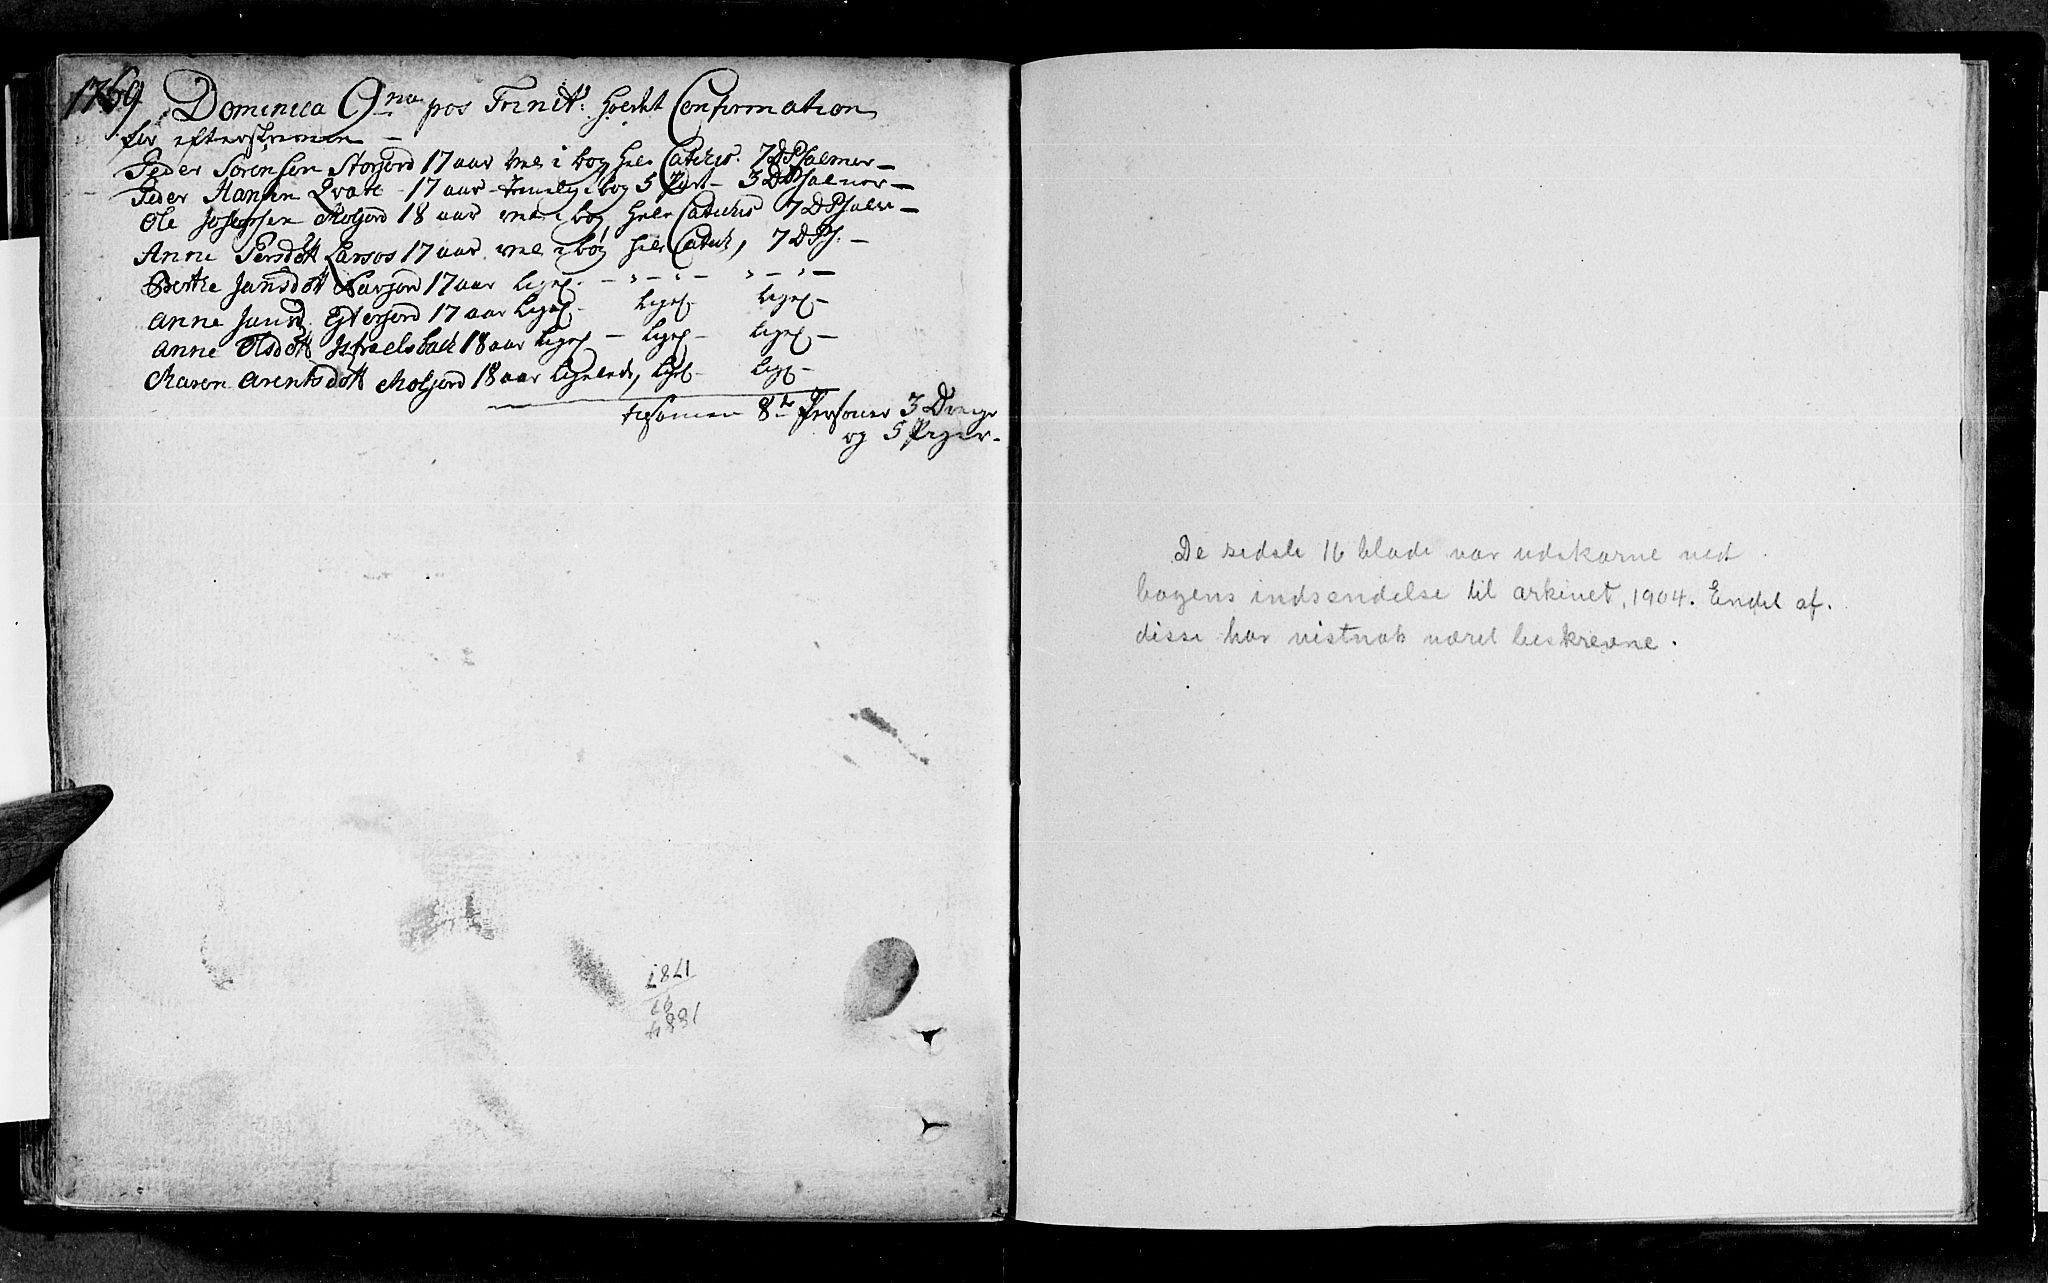 1769 Dominica 9na pos Trinit: holdt Confirmation
for efterskrevene
Peder Sørensen Storjord 17 aar vel i bog hele Catechis. 7 D Psalmer
Peder Hansen Qvale 17 aar temelig i bog 5 Part 3 D Psalmer
Ole Josepsen Moljord 18 aar vel i bog hele Catechis 7 D Psalm
Anne Persdott Larsos 17 aar vel i bog hele Catech, 7 D Ps.
Berthe Jansdott Navjord 17 aar ligel. " " " "
Anne Jansd. Ytterjord 17 aar ligel. ligel. ligel.
Anne Olsdott Israelsbak 18 aar ligel ligel. ligel
Maren Arentsdott Moljord 18 aar ligeledes, ligel ligel.
tilsamen 8te Personer 3 Drenge
og 5 Piger.
1841
1884
De sidste 16 blade var udskarne ved
bogens indsendelse til arkivet, 1904. Endel af
disse har vistnok været beskrevne.